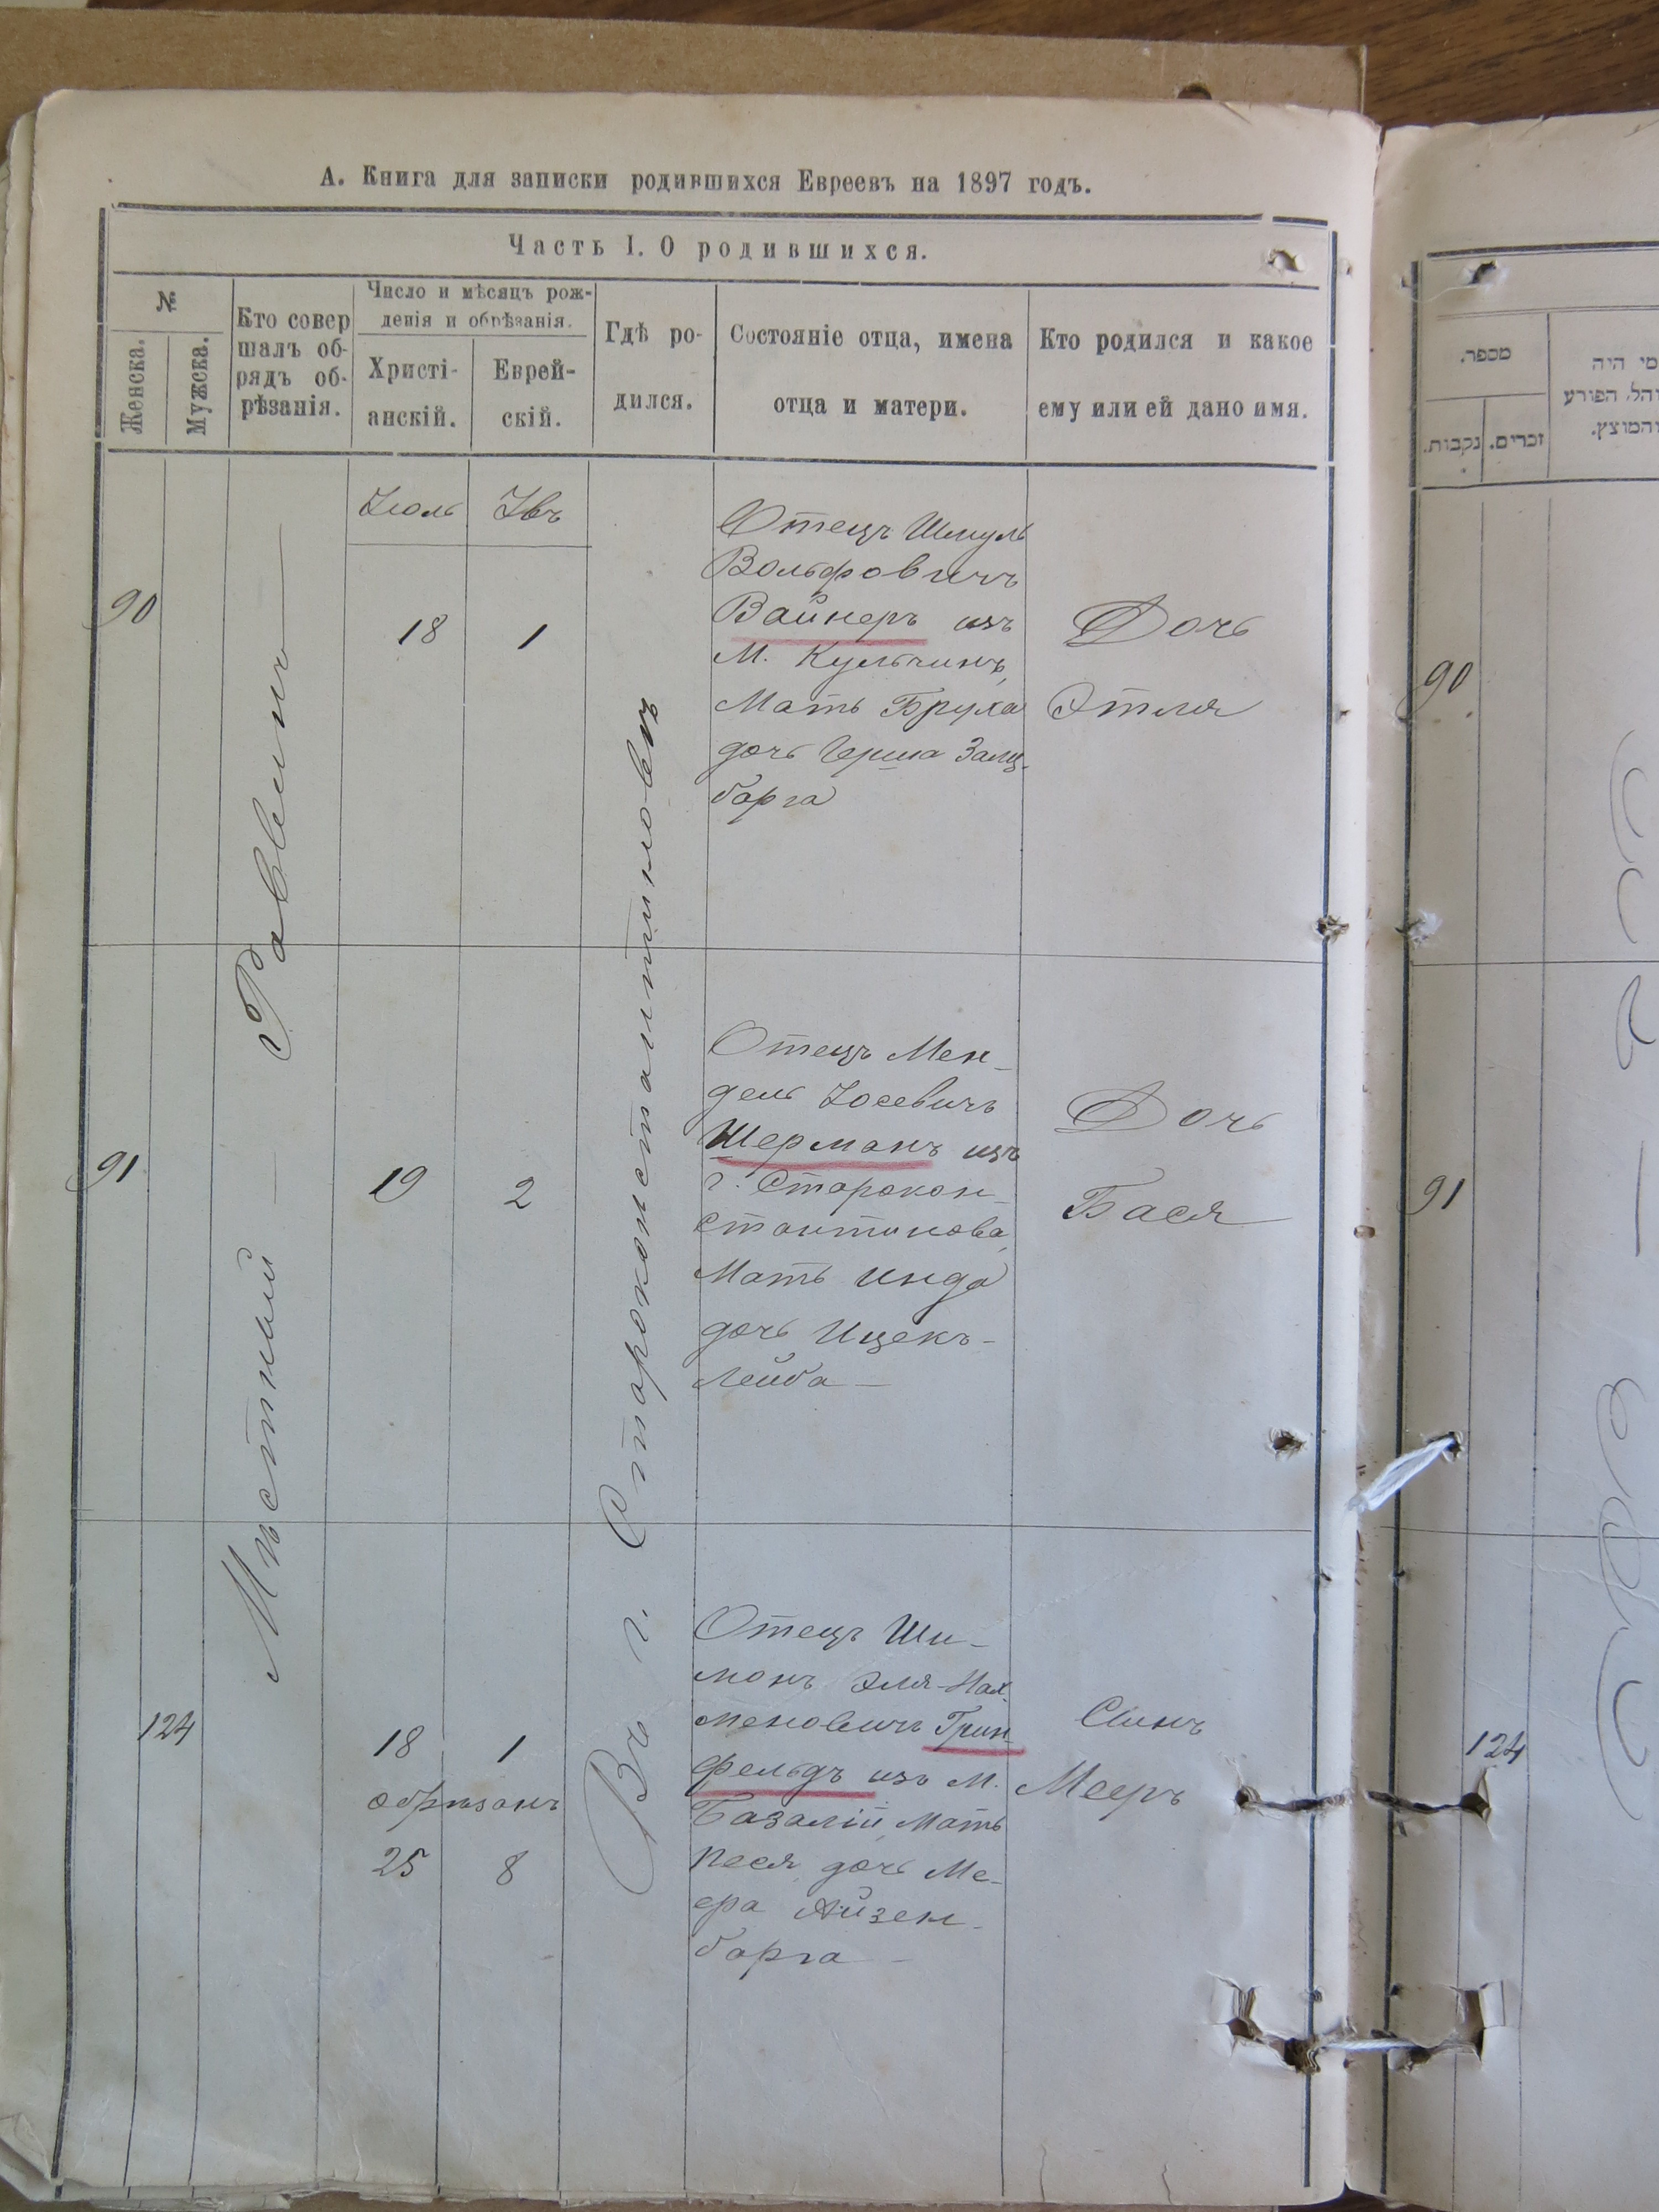 А. Книга для записки родившихся Евреевъ на 1897 годъ.
Часть I. О родившихся.
№
Женска.
Мужска.
Кто совер
шалъ об-
рядъ об-
рѣзанія.
Число и мѣсяцъ рож-
денія и обрѣзанія.
Христі-
анскій.
Еврей-
скій.
Гдѣ ро-
дился.
Состояніе отца, имена
отца и матери.
Кто родился и какое
ему или ей дано имя.
Мѣстный — Раввинъ —
Въ г. Староконстантиновѣ
Іюль
Івъ
90
18
1
Отецъ Шмуль
Вольфовичъ
Вайнеръ изъ
М. Кульчинъ,
Мать Бруха
дочь Герша Залц-
барга
Дочь
Этля
91
19
2
Отецъ Мен-
дель Іосевичъ
Шерманъ изъ
г. Старокон-
стантинова,
Мать Инда
дочь Ицекъ-
Лейба —
Дочь
Бася
124
18
1
обрѣзанъ
25
8
Отецъ Ши-
монъ Эля-Нах-
меновичъ Грин-
фельдъ изъ М.
Базалій, Мать
Песя, дочь Ме-
ера Айзен-
барга —
Сынъ
Мееръ
מספר.
נקבות.
זכרים.
מי היה
והל, הפורע
והמוצץ.
90
91
124